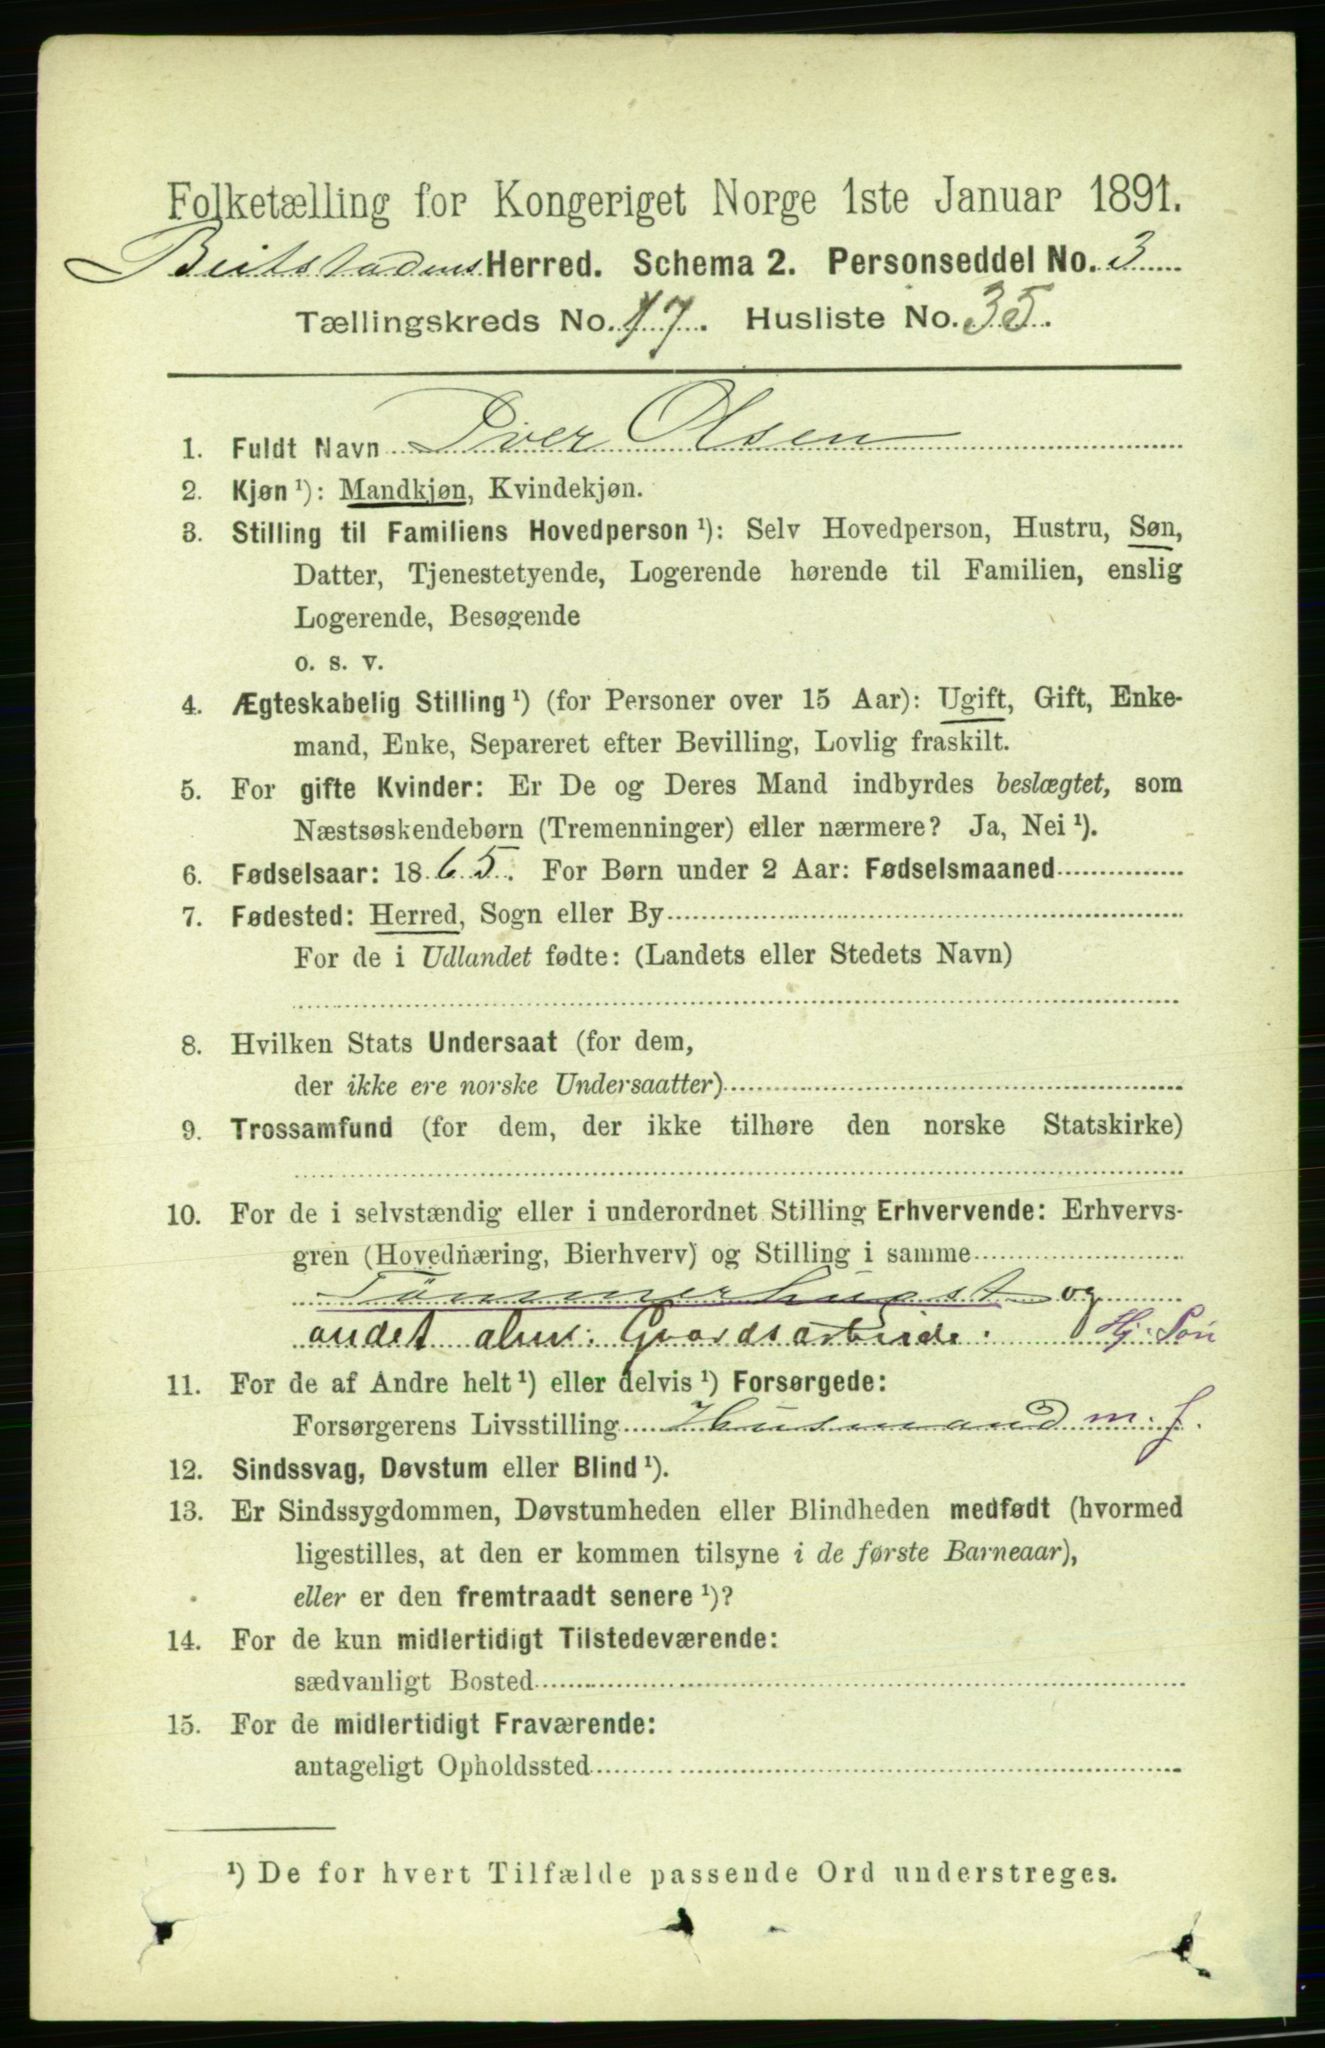 Folketælling for Kongeriget Norge 1ste Januar 1891.
Beitstadens Herred. Schema 2. Personseddel No. 3
Tællingskreds No. 17. Husliste No. 35.
1. Fuldt Navn Iver Olsen
2. Kjøn ¹): Mandkjøn, Kvindekjøn.
3. Stilling til Familiens Hovedperson ¹): Selv Hovedperson, Hustru, Søn,
Datter, Tjenestetyende, Logerende hørende til Familien, enslig
Logerende, Besøgende
o. s. v.
4. Ægteskabelig Stilling ¹) (for Personer over 15 Aar): Ugift, Gift, Enke-
mand, Enke, Separeret efter Bevilling, Lovlig fraskilt.
5. For gifte Kvinder: Er De og Deres Mand indbyrdes beslægtet, som
Næstsøskendebørn (Tremenninger) eller nærmere? Ja, Nei ¹).
6. Fødselsaar: 1865. For Børn under 2 Aar: Fødselsmaaned
7. Fødested: Herred, Sogn eller By
For de i Udlandet fødte: (Landets eller Stedets Navn)
8. Hvilken Stats Undersaat (for dem,
der ikke ere norske Undersaatter)
9. Trossamfund (for dem, der ikke tilhøre den norske Statskirke)
10. For de i selvstændig eller i underordnet Stilling Erhvervende: Erhvervs-
gren (Hovednæring, Bierhverv) og Stilling i samme
Tømmerhugst og
andet alm. Gaardsarbeide. Hj. Søn
11. For de af Andre helt ¹) eller delvis ¹) Forsørgede:
Forsørgerens Livsstilling Husmand m. J.
12. Sindssvag, Døvstum eller Blind ¹).
13. Er Sindssygdommen, Døvstumheden eller Blindheden medfødt (hvormed
ligestilles, at den er kommen tilsyne i de første Barneaar),
eller er den fremtraadt senere ¹)?
14. For de kun midlertidigt Tilstedeværende:
sædvanligt Bosted
15. For de midlertidigt Fraværende:
antageligt Opholdssted
¹) De for hvert Tilfælde passende Ord understreges.